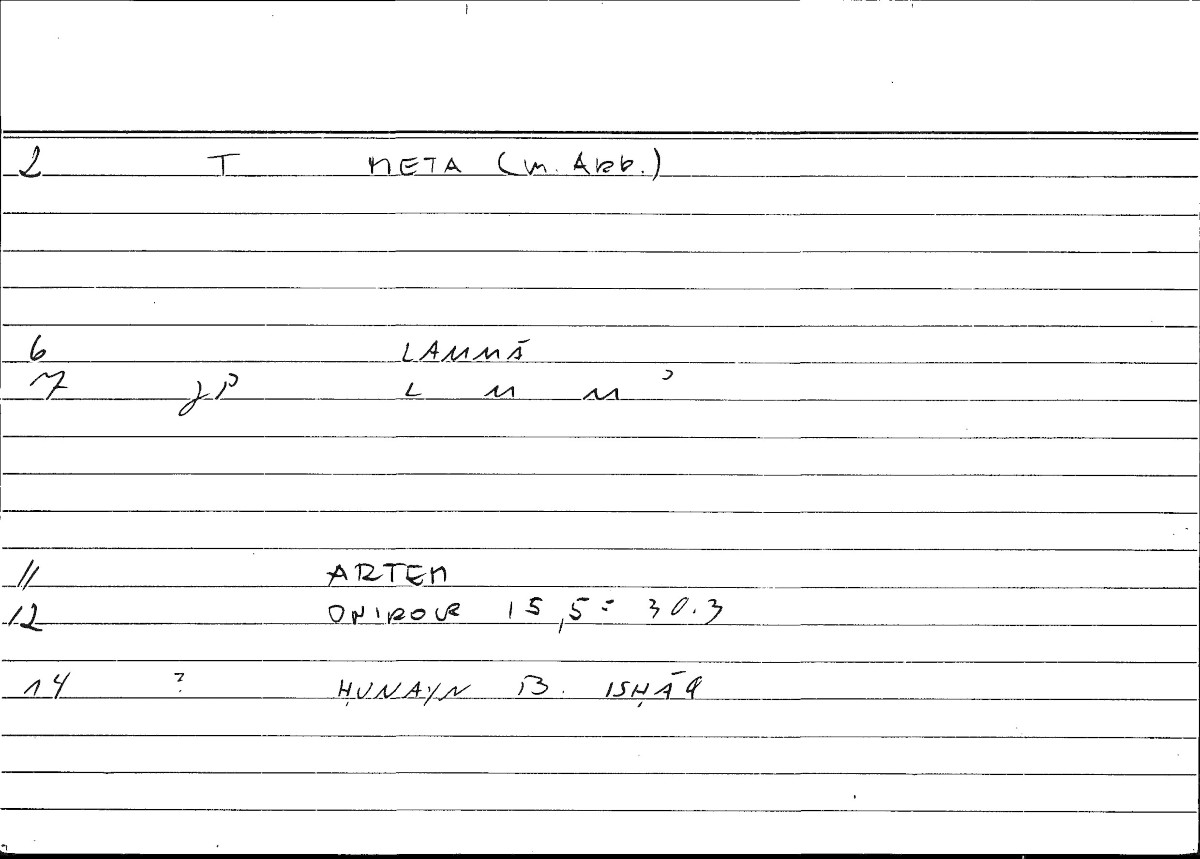 2 T META (m. Akk.)
6 LAMMĀ
7 jP L M M ʾ
11 ARTEM
12 ONIROCR 15,5 = 30.3
14 ? ḤUNAYN B. ISḤĀQ